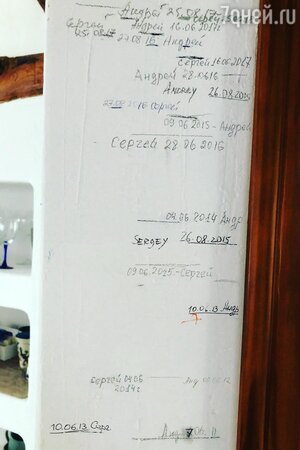 7дней.ru
Андрей 25.08.17
Сергей 16.06.2017
Андрей 16.06.2017г
25.08.17
27.08.16 Андрей
Сергей 16.06.2017
Андрей 28.0616
Andrey 26.08.2015
27.08.2016 Сергей
09.06.2015-Андрей
Сергей 28 06 2016
04.06.2014 Андр
SERGEY 26.08.2015
09.06.2015-Сергей
10.06.13
7
Сергей 04.06
2014г.
10.06.13 Сере
7